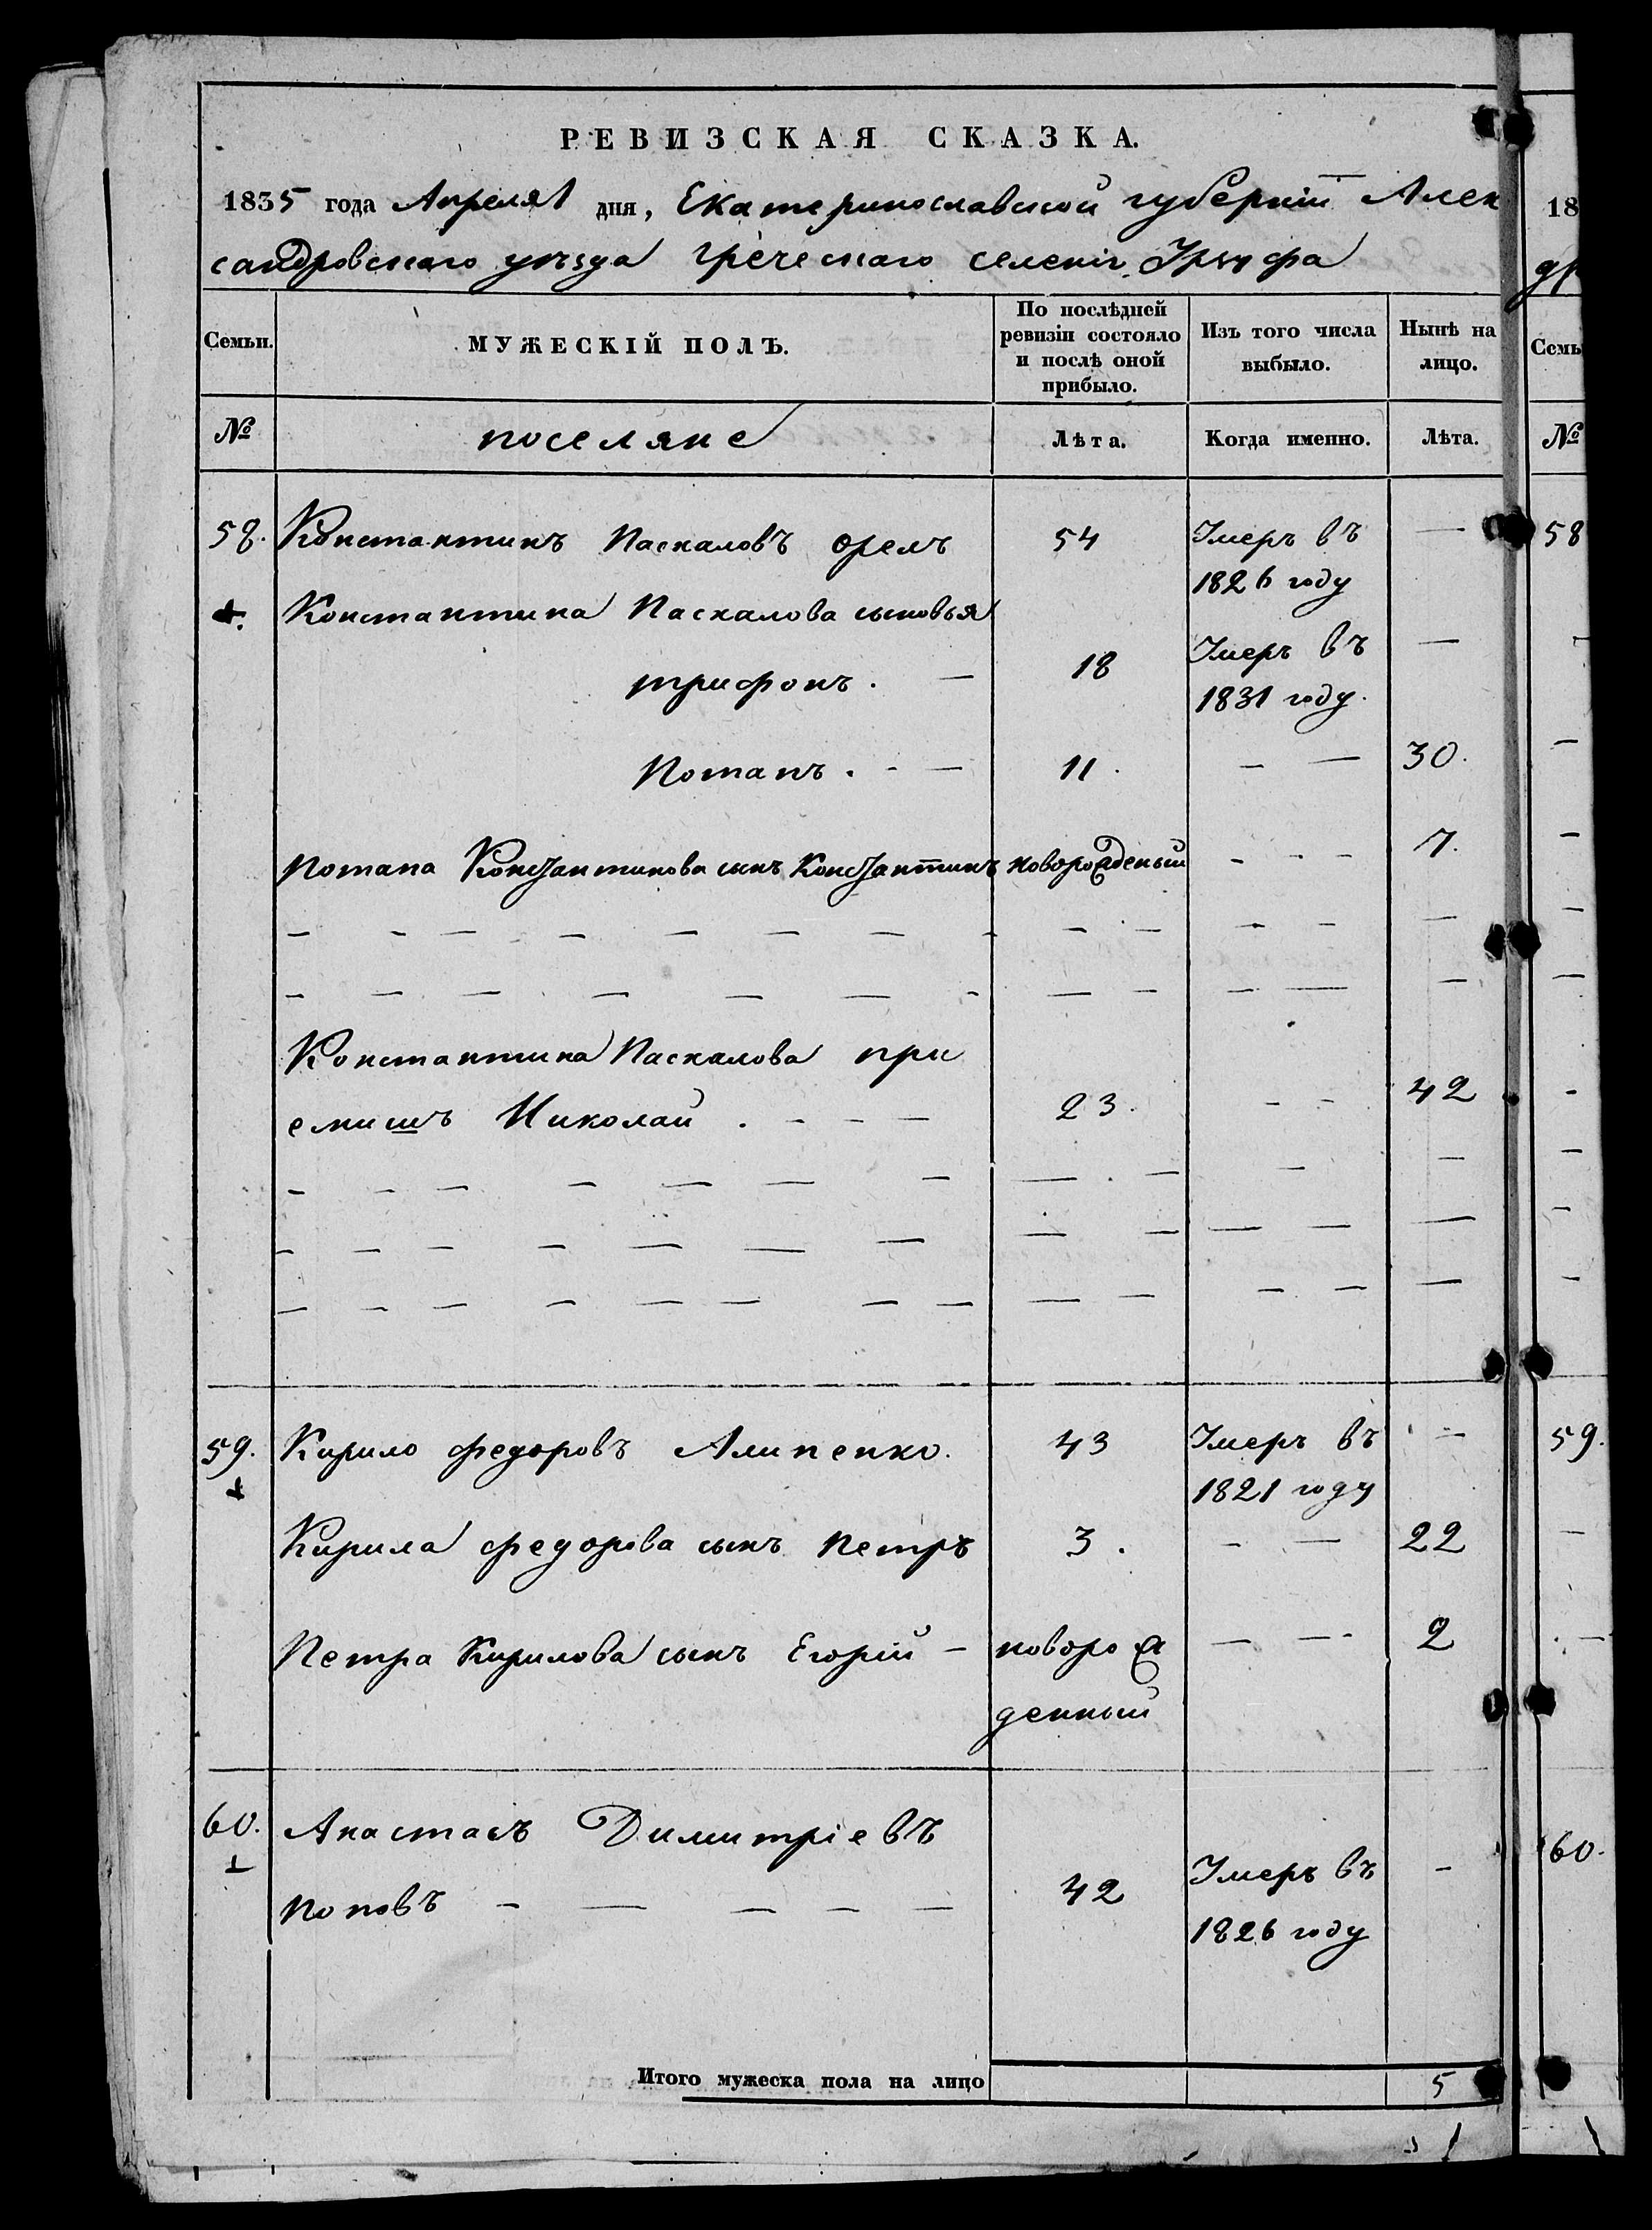 РЕВИЗСКАЯ СКАЗКА.
1835 года Апреля 1 дня, Екатеринославской губернiи Алек
сандровскаго уѣзда греческаго селенiя Урзуфа
Семьи. МУЖЕСКІЙ ПОЛЪ. По послѣдней ревизіи состояло и послѣ оной прибыло. Изъ того числа выбыло. Нынѣ на лицо.
№ поселяне Лѣта. Когда именно. Лѣта.
58. Константинъ Паскаловъ орелъ 54 Умеръ въ —
1826 году
Константина Паскалова сыновья
трифонъ. — 18 Умеръ въ —
1831 году.
Потапъ. - — 11. - — 30.
Потапа Константинова сынъ Константинъ новорожденый - - - 7.
Константина Паскалова при
емишъ Николай . - - — 23. - - 42
59. Кирило федоровъ Алипенко. 43 Умеръ въ -
1821 году
Кирила федорова сынъ Петръ 3. - — 22
Петра Кирилова сынъ Егорій — новорож — — 2
денный
60. Анастасъ Димитріевъ
Поповъ - — — — — 42 Умеръ въ -
1826 году
Итого мужеска пола на лицо 5
18
др
Семь
№
58
59.
60.